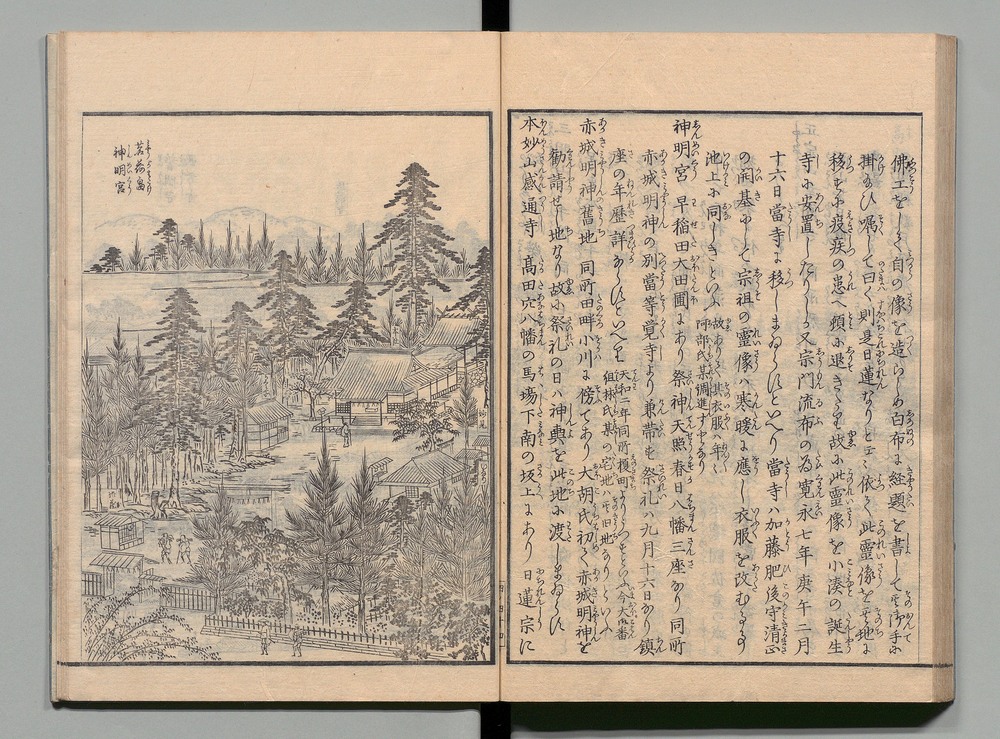 佛工をして自の像を造らしめ白布に経題を書して其御手に
掛たまひ嘱して曰く則是日蓮なりと云々依て此霊像を其地に
移すに疫疾の患へ頓に退きたり故に此霊像を小湊の誕生
寺に安置したりしか又宗門流布の為寛永七年庚午二月
十六日當寺に移しまゐらすといへり當寺ハ加藤肥後守清正
の開基にして宗祖の霊像ハ寒暖に應し衣服を改むるもの
池上に同しきといふ故ありて其衣服ハ年々阿部氏某調進す
神明宮 早稲田大田圃にあり祭神天照春日八幡三座なり同所
赤城明神の別當等覚寺より兼帯も祭礼ハ九月十六日なり鎮
座の年歴詳ならすといへとも天和二年同所榎町今大御番組林氏某の宅地ハ旧地なりといふ
赤城明神舊地 同所田畔小川に傍てあり大胡氏初て赤城明神を
勧請せし地なり故に祭礼の日ハ神輿を此地に渡しまゐらす
本妙山感通寺 髙田穴八幡の馬場下南の坂上にあり日蓮宗に
茗荷畠
神明宮